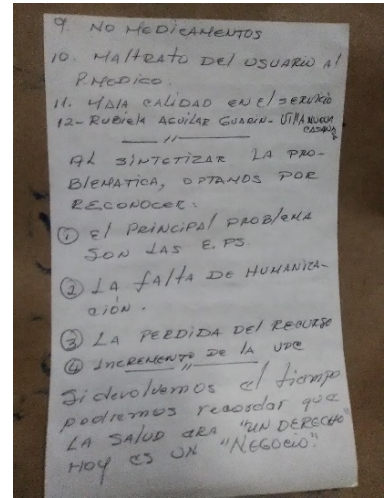 9. NO MEDICAMENTOS
10. MALTRATO DEL USUARIO Al
P. MEDICO.
11. MALA CALIDAD EN El SERVICIO
12- RUBIELA AGUILAR GUARIN- VILLANUEVA
CASANA
AL SINTETIZAR LA PRO-
BLEMATICA, OPTAMOS POR
RECONOCER:
① El PRINCIPAL PROBLEMA
SON LAS E.PS.
② LA FALTA DE HUMANIZA-
CIÓN.
③ LA PERDIDA DEL RECURSO
④ INCREMENTO DE LA UPC
Si devolvemos el tiempo
podremos recordar que
LA SALUD ERA "UN DERECHO"
HOY ES UN "NEGOCIO".